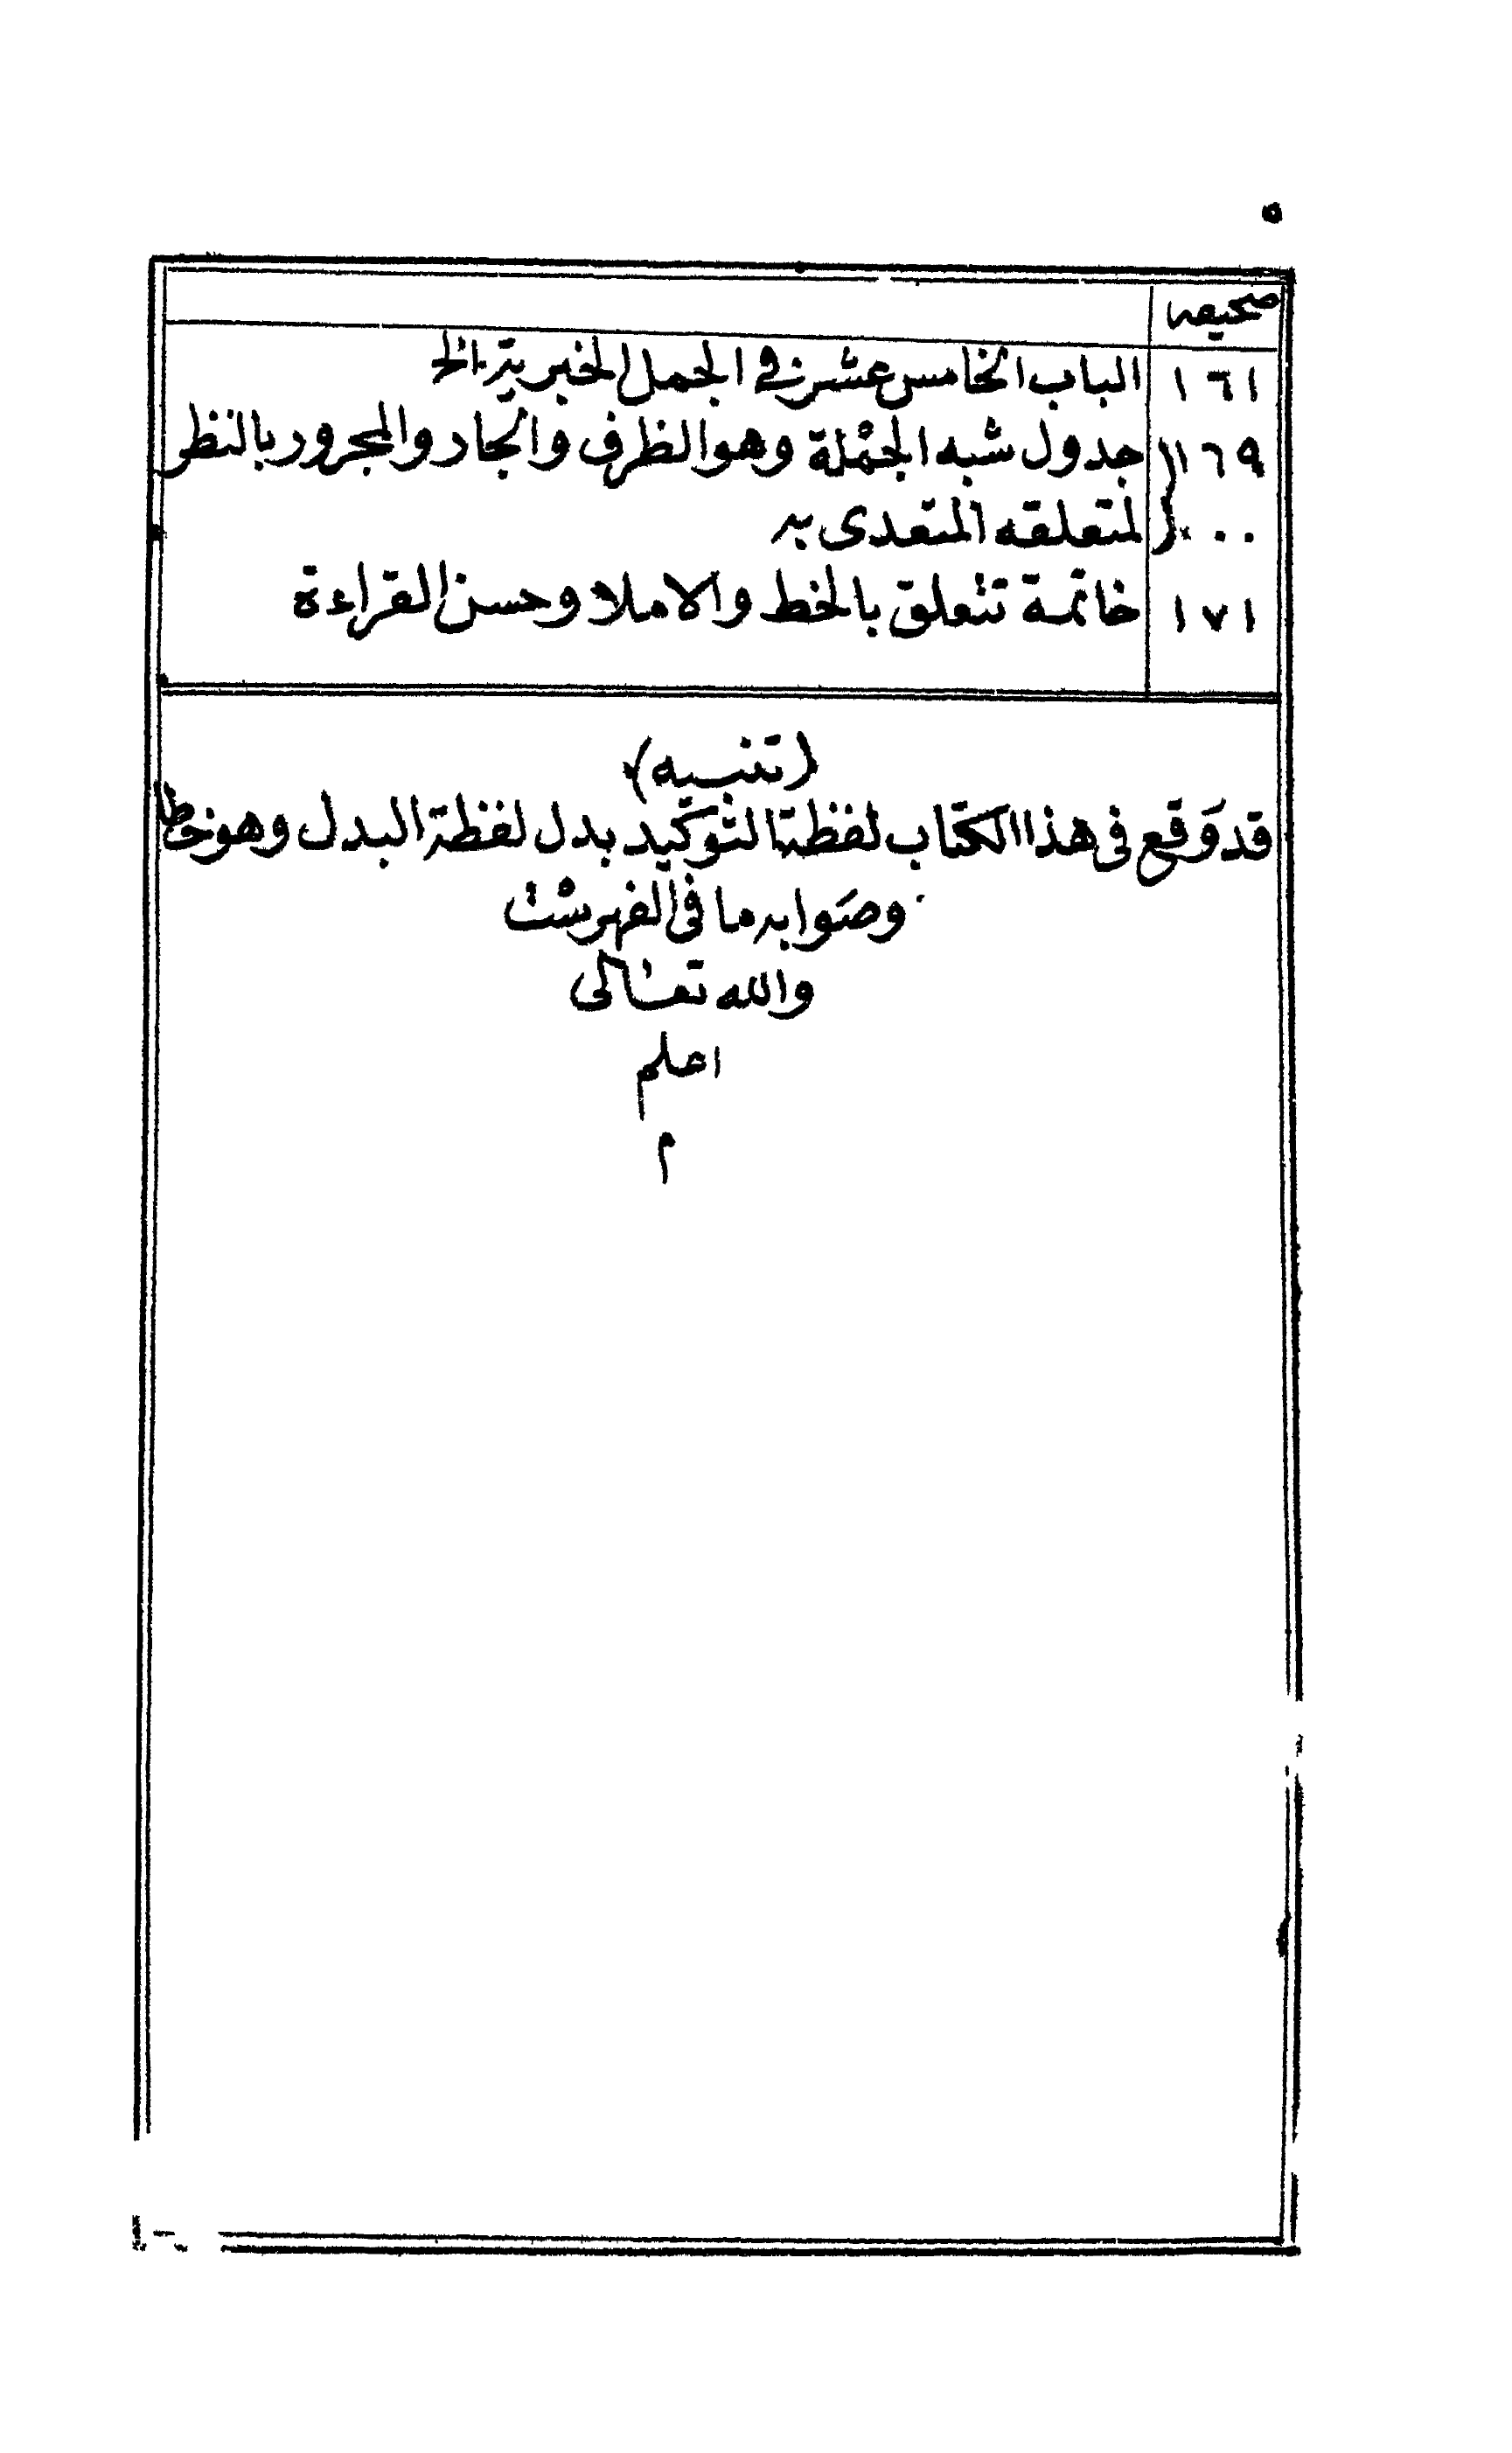 ٥
صحيفه
١٦١ الباب الخامس عشر فى الجمل الخبرية الخ
١٦٩ جدول شبه الجملة وهو الظرف والجار والمجرور بالنظر
٠٠٠ لمتعلقه المتعدى به
١٧١ خاتمة تتعلق بالخط والاملا وحسن القراءة
(تنبيه)
قد وقع فى هذا الكتاب لفظة التوكيد بدل لفظة البدل وهو خطا
وصوابه ما فى الفهرست
والله تعالى
اعلم
م